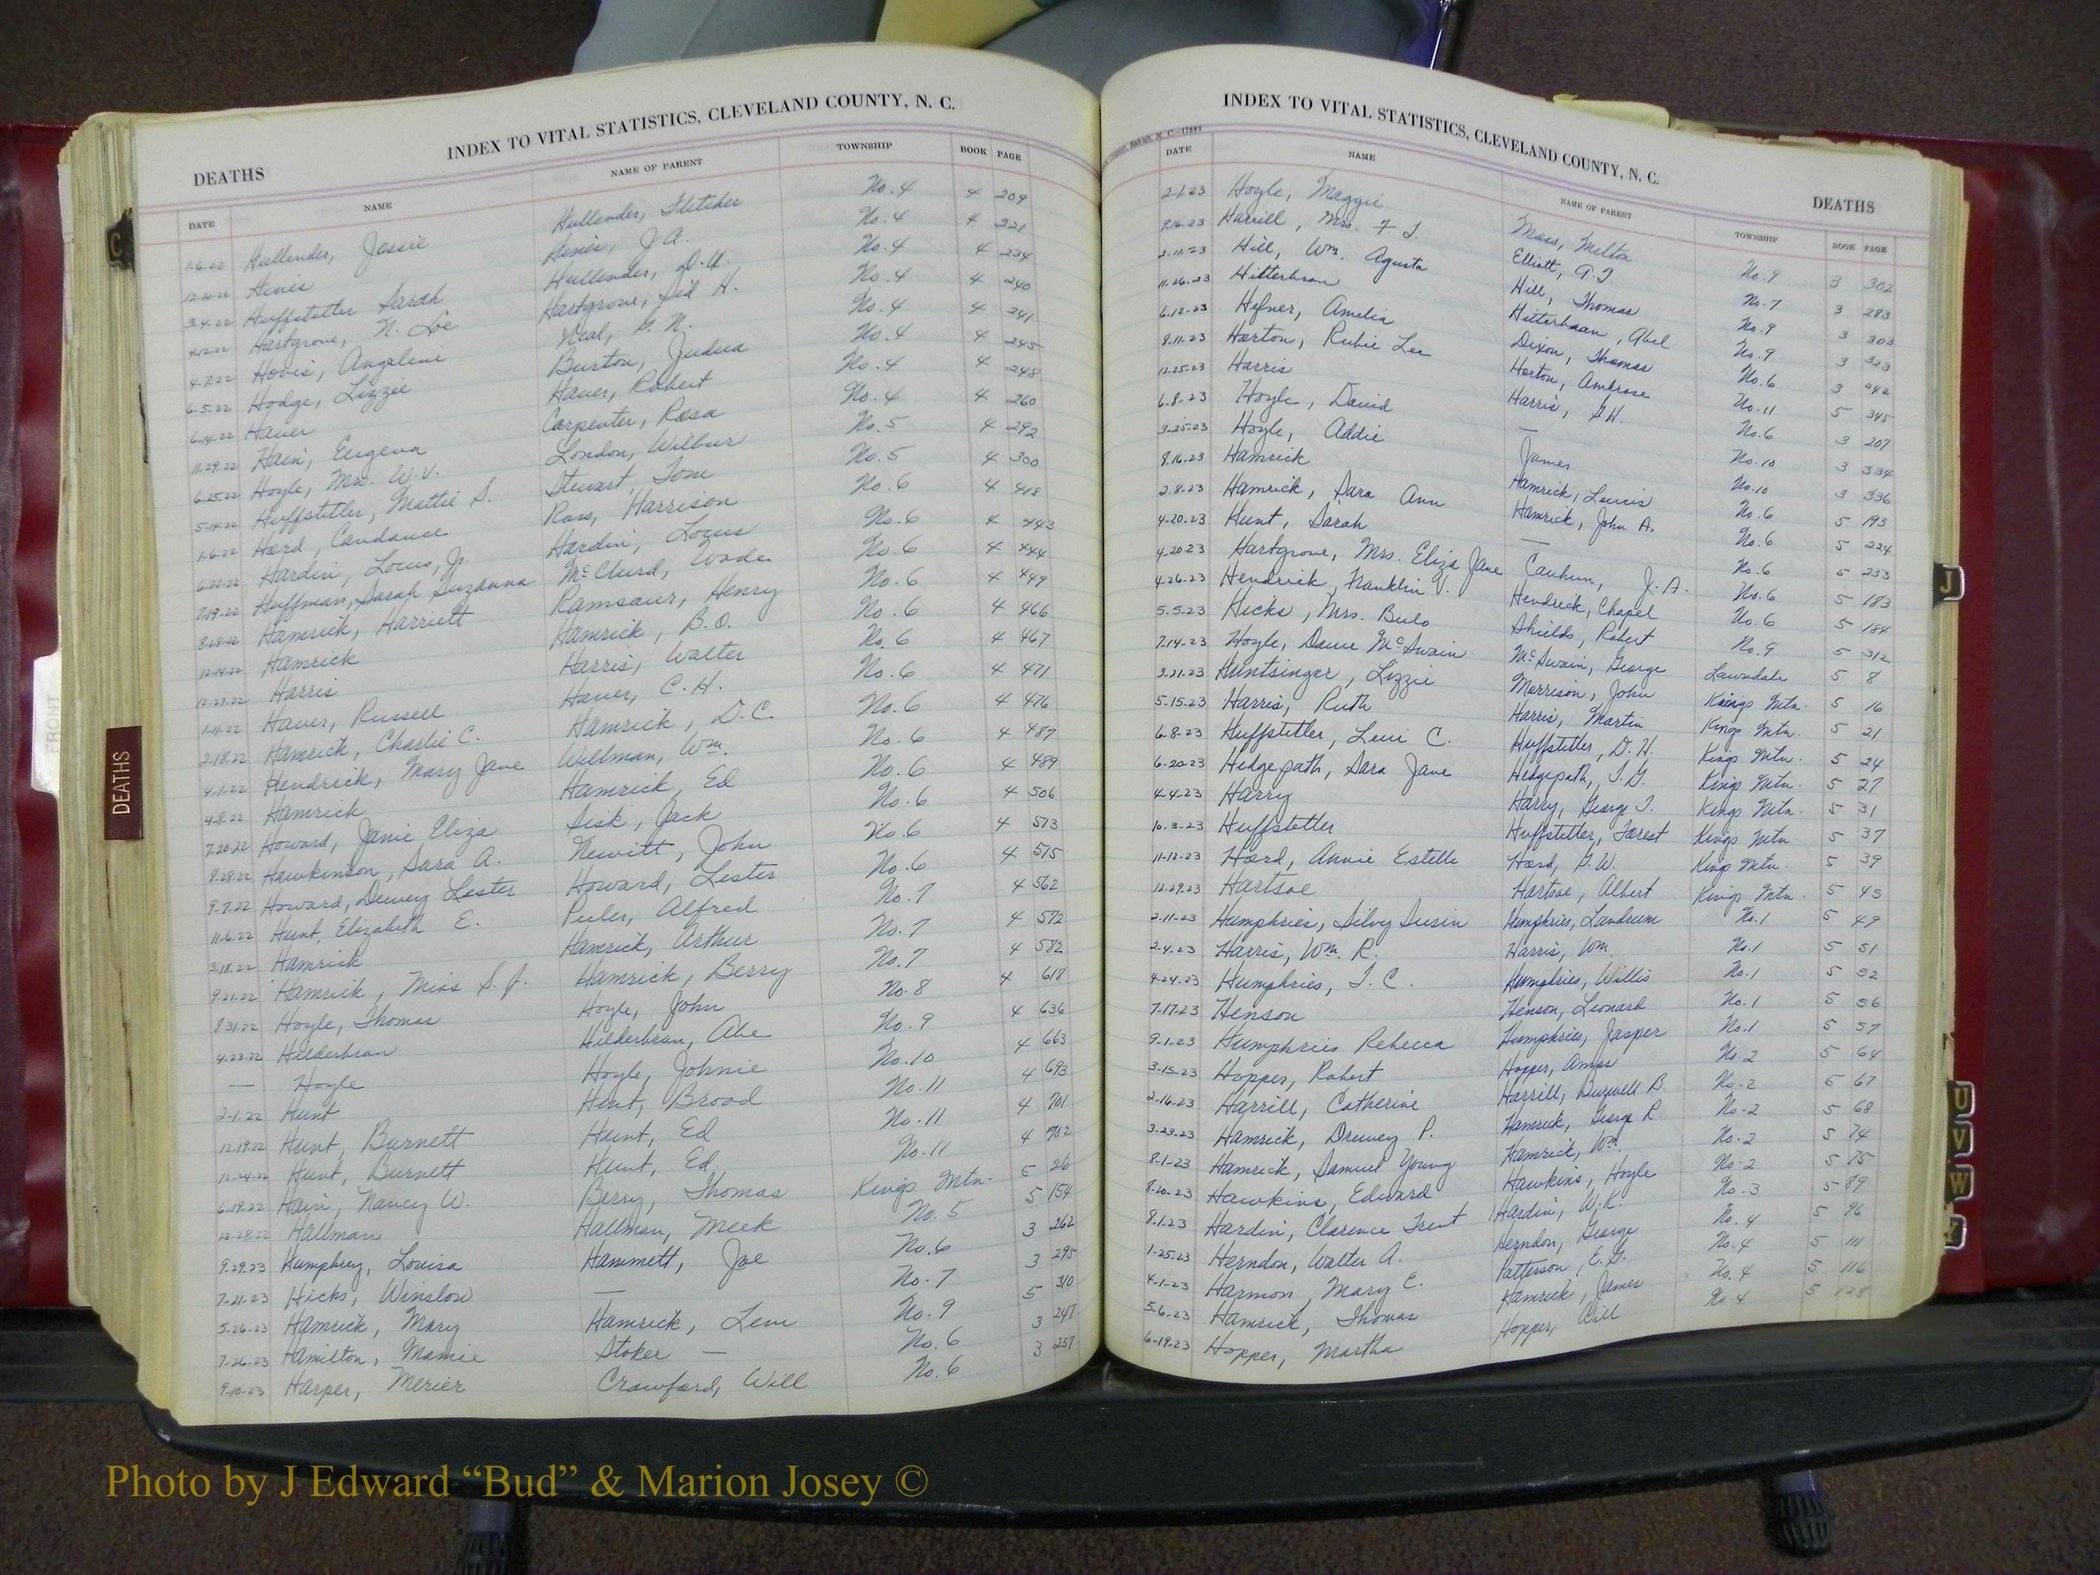 INDEX TO VITAL STATISTICS, CLEVELAND COUNTY, N. C.
DEATHS
DATE NAME NAME OF PARENT TOWNSHIP BOOK PAGE
1-6-22 Hullender, Jessie Hullender, Fletcher No. 4 4 209
12-20-22 Hines Hines, J.A. No. 4 4 221
3-4-22 Huffstetler Sarah Hullender, D.H. No. 4 4 234
4-12-22 Hartgrove, N. Loe Hartgrove, Sid H. No. 4 4 240
4-7-22 Hovis, Angeline Neal, G. N. No. 4 4 241
6-5-22 Hodge, Lizzie Burton, Judua No. 4 4 245
6-14-22 Haver Haver, Robert No. 4 4 248
11-29-22 Hain, Eugena Carpenter, Rosa No. 4 4 260
6-25-22 Hoyle, Mrs. W.V. London, Wilbur No. 5 4 292
5-14-22 Huffstetler, Mattie S. Stewart, Tom No. 5 4 300
1-6-22 Hord, Candance Ross, Harrison No. 6 4 418
6-22-22 Hardin, Locus, Jr. Hardin, Locus No. 6 4 443
7-19-22 Huffman, Sarah Suzanna McClurd, Wade No. 6 4 444
8-28-22 Hamrick, Harriett Ramsaur, Henry No. 6 4 449
12-14-22 Hamrick Hamrick, B.O. No. 6 4 466
12-27-22 Harris Harris, Walter No. 6 4 467
1-11-22 Haver, Russell Haver, C. H. No. 6 4 471
2-18-22 Hamrick, Charlie C. Hamrick, D.C. No. 6 4 476
4-1-22 Hendrick, Mary Jane Wellman, Wm. No. 6 4 487
4-8-22 Hamrick Hamrick, Ed No. 6 4 489
7-20-22 Howard, Janie Eliza Sisk, Jack No. 6 4 506
8-28-22 Hawkinson, Sara A. Newitt, John No. 6 4 513
9-7-22 Howard, Dewey Lester Howard, Lester No. 6 4 515
11-6-22 Hunt, Elizabeth E. Peeler, Alfred No. 7 4 562
3-18-22 Hamrick Hamrick, Arthur No. 7 4 572
9-21-22 Hamrick, Miss S. J. Hamrick, Berry No. 7 4 582
8-31-22 Hoyle, Thomas Hoyle, John No. 8 4 618
4-23-22 Hilderbran Hilderbran, Abe No. 9 4 636
— Hoyle Hoyle, Johnie No. 10 4 663
2-1-22 Hunt Hunt, Broad No. 11 4 693
12-19-22 Hunt, Burnett Hunt, Ed No. 11 4 701
12-24-22 Hunt, Burnett Hunt, Ed. No. 11 4 702
6-19-22 Hain, Nancy W. Berry, Thomas Kings Mtn. 5 26
12-28-22 Hallman Hallman, Meek No. 5 5 154
9-29-23 Humphrey, Louisa Hammett, Joe No. 6 3 262
7-21-23 Hicks, Winslow — No. 7 3 295
5-26-23 Hamrick, Mary Hamrick, Lem No. 9 5 310
7-26-23 Hamilton, Mamie Stoker — No. 6 3 247
9-10-23 Harper, Merier Crawford, Will No. 6 3 257
INDEX TO VITAL STATISTICS, CLEVELAND COUNTY, N. C.
DEATHS
DATE NAME NAME OF PARENT TOWNSHIP BOOK PAGE
2-1-23 Hoyle, Maggie Moss, Melton No. 9 3 302
9-16-23 Harrill, Mrs. F. J. Elliott, A.J. No. 7 3 283
2-11-23 Hill, Wm. Agusta Hill, Thomas No. 9 3 303
11-26-23 Hitterbran Hitterbran, Abel No. 9 3 323
6-12-23 Hefner, Amelia Dixon, Thomas No. 6 3 242
8-11-23 Horton, Rubie Lee Horton, Ambrose No. 11 5 345
12-25-23 Harris Harris, G.H. No. 6 3 207
6-8-23 Hoyle, David — No. 10 3 334
3-25-23 Hoyle, Addie James No. 10 3 336
8-16-23 Hamrick Hamrick, Lewis No. 6 5 193
2-8-23 Hamrick, Sara Ann Hamrick, John A. No. 6 5 224
4-20-23 Hunt, Sarah — No. 6 5 233
4-20-23 Hartgrove, Mrs. Eliza Jane Cauhun, J. A. No. 6 5 183
4-26-23 Hendrick, Franklin Y. Hendrick, Chapel No. 6 5 184
5-5-23 Hicks, Mrs. Bulo Shields, Robert No. 9 5 312
7-14-23 Hoyle, Dovie McSwain McSwain, George Lawndale 5 8
3-21-23 Huntsinger, Lizzie Morrison, John Kings Mtn. 5 16
5-15-23 Harris, Ruth Harris, Martin Kings Mtn. 5 21
6-8-23 Huffstetler, Levi C. Huffstetler, D. H. Kings Mtn. 5 24
6-20-23 Hedgepath, Sara Jane Hedgepath, T.G. Kings Mtn. 5 27
4-4-23 Harry Harry, George T. Kings Mtn. 5 31
10-3-23 Huffstetler Huffstetler, Forest Kings Mtn. 5 37
11-12-23 Hord, Annie Estelle Hord, G.W. King Mtn. 5 39
12-29-23 Hartsoe Hartsoe, Albert Kings Mtn. 5 45
2-11-23 Humphries, Silvy Susin Humphries, Landrum No. 1 5 49
2-4-23 Harris, Wm. R. Harris, Wm. No. 1 5 51
4-24-23 Humphries, T. C. Humphries, Willis No. 1 5 52
7-17-23 Henson Henson, Leonard No. 1 5 56
9-1-23 Humphries Rebecca Humphries, Jasper No. 1 5 57
3-15-23 Hopper, Robert Hopper, Amos No. 2 5 64
2-16-23 Harrill, Catherine Harrill, Burwell B. No. 2 5 67
3-23-23 Hamrick, Druvey P. Hamrick, George R. No. 2 5 68
8-1-23 Hamrick, Samuel Young Hamrick, Wm. No. 2 5 74
8-20-23 Hawkins, Edward Hawkins, Hoyle No. 2 5 75
8-1-23 Hardin, Clarence Trent Hardin, W.K. No. 3 5 89
1-25-23 Herndon, Walter A. Herndon, George No. 4 5 96
4-1-23 Harmon, Mary E. Patterson, E.G. No. 4 5 111
5-6-23 Hamrick, Thomas Hamrick, James No. 4 5 116
6-19-23 Hopper, Martha Hopper, Will No 4 5 128
C
FRONT
DEATHS
J
U
V
W
Photo by J Edward “Bud” & Marion Josey ©